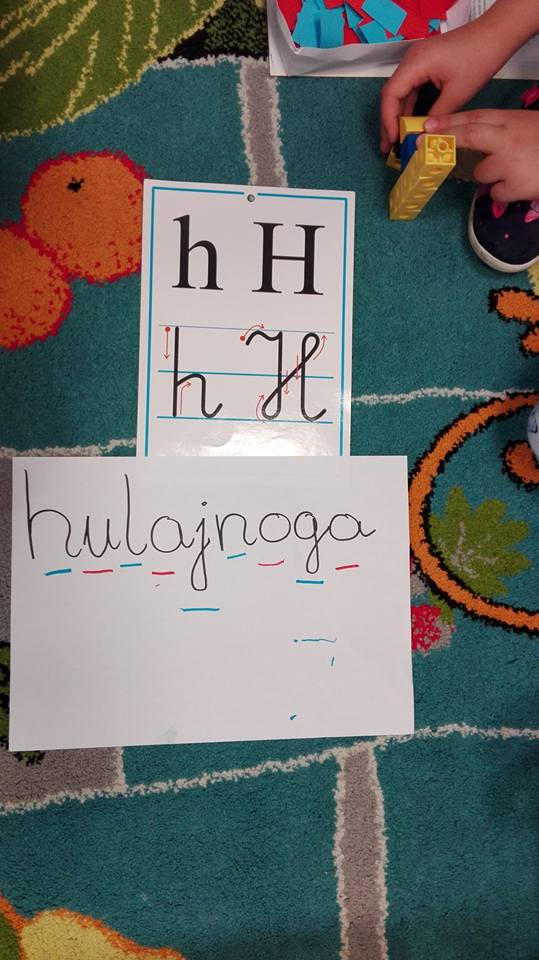 h H
h H
hulajnoga